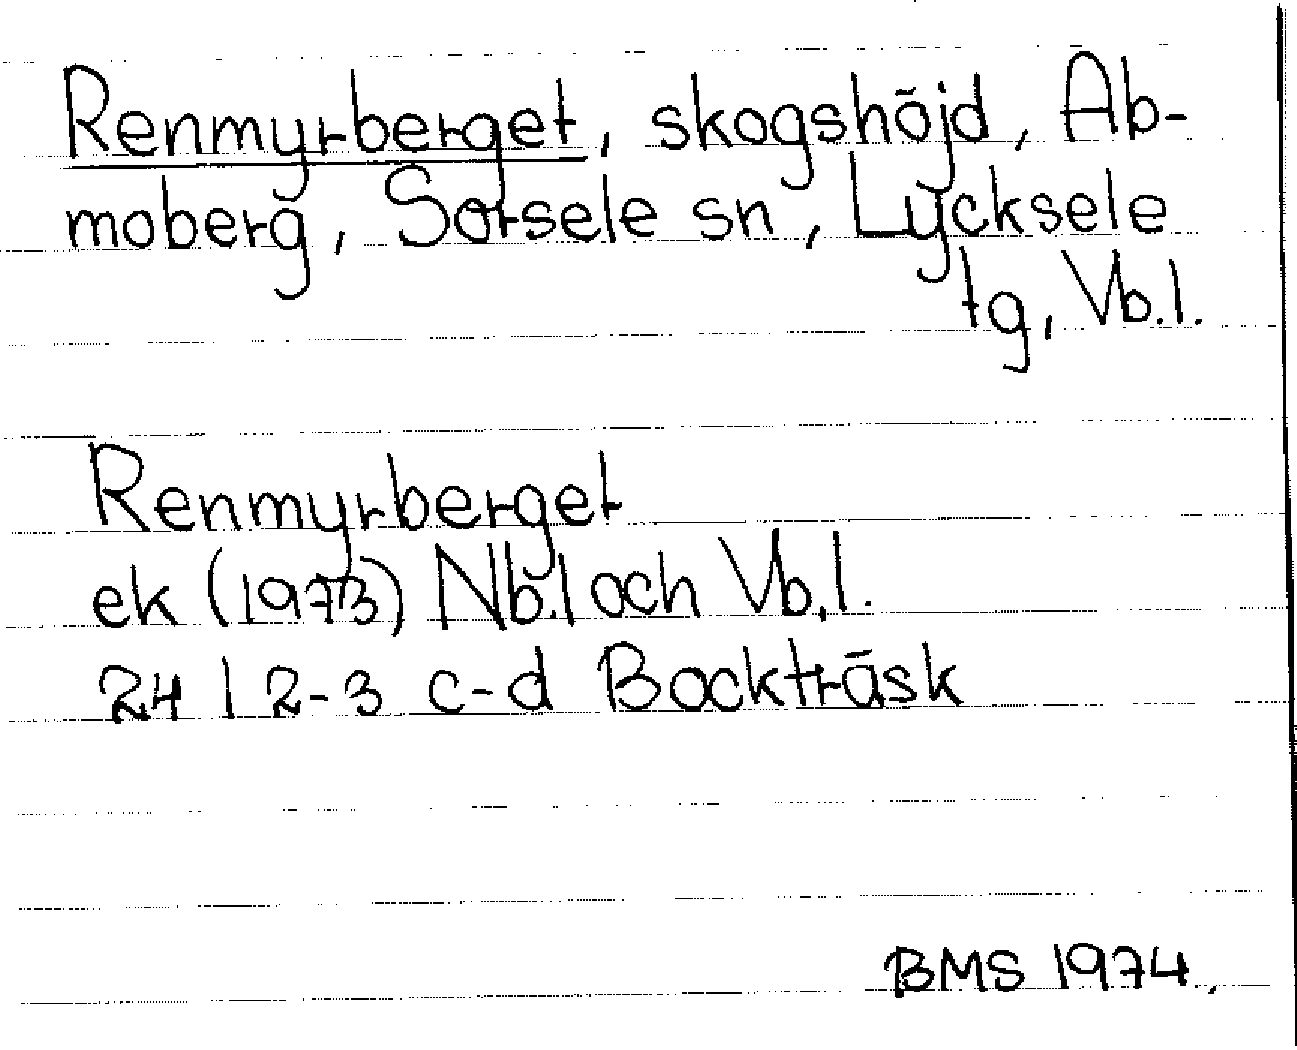 Renmyrberget, skogshöjd, Ab-
moberg, Sorsele sn, Lycksele
tg, Vb.l.
Renmyrberget
ek (1973) Nb.l och Vb.l.
24 I 2-3 c-d Bockträsk
BMS 1974.